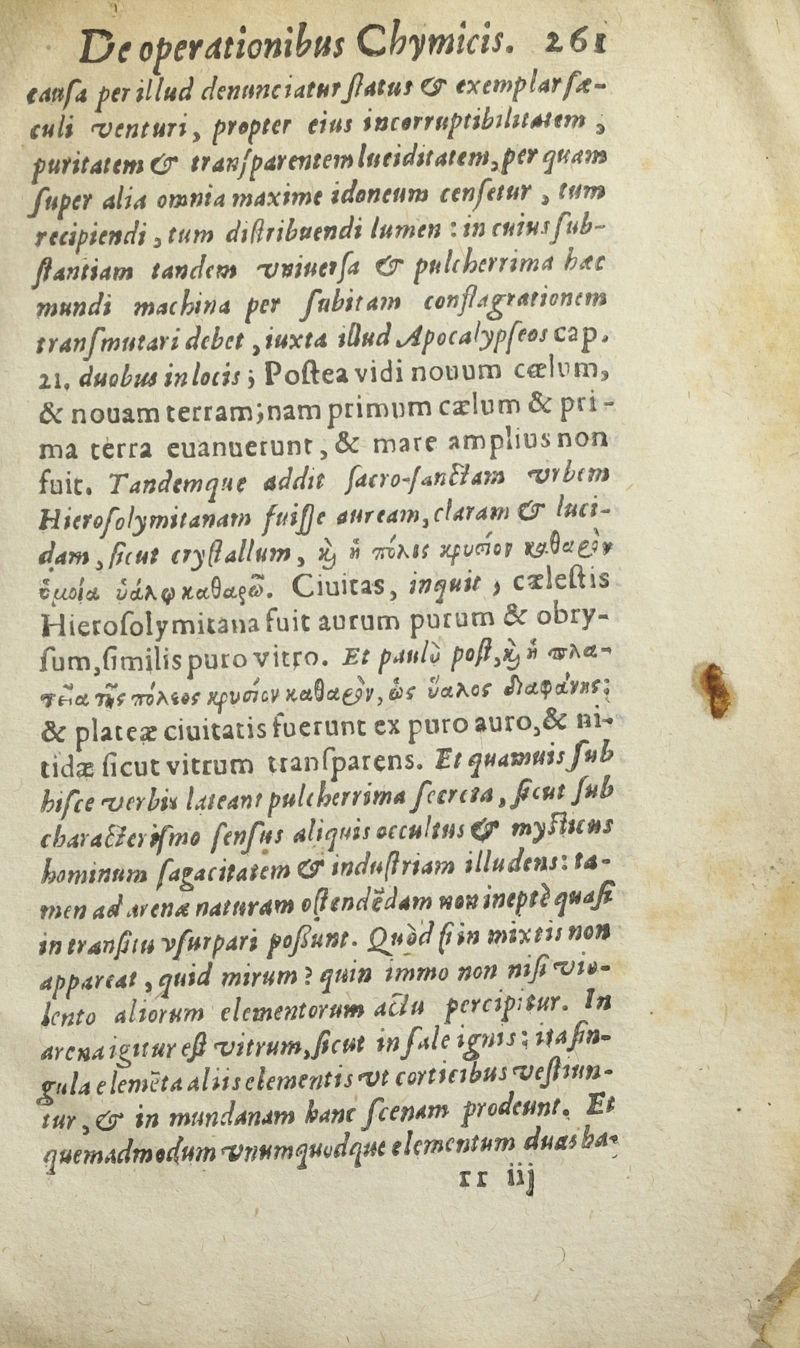 De operationibus Chymicis. 261
causa per illud denunciatur status & exemplar sæ-
culi venturi, propter eius incorruptibilitatem,
puritatem & transparentem luciditatem, per quam
super alia omnia maxime idoneum censetur, tum
recipiendi, tum distribuendi lumen: in cuius sub-
stantiam tandem vniuersa & pulcherrima hæc
mundi machina per subitam conflagrationem
transmutari debet, iuxta illud Apocalypseos cap.
21. duobus in locis; Postea vidi nouum cælum,
& nouam terram; nam primum cælum & pri-
ma terra euanuerunt, & mare amplius non
fuit. Tandemque addit sacro-sanctam vrbem
Hierosolymitanam fuisse auream, claram & luci-
dam, sicut crystallum, καὶ ἡ πόλις χρυσίον καθαρὸν
ὁμοία ὑάλῳ καθαρῷ. Ciuitas, inquit, cælestis
Hierosolymitana fuit aurum purum & obry-
sum, similis puro vitro. Et paulò post, καὶ ἡ πλα-
τεῖα τῆς πόλεος χρυσίον καθαρὸν, ὡς ὕαλος διαφανής;
& plateæ ciuitatis fuerunt ex puro auro, & ni-
tidæ sicut vitrum transparens. Et quamuis sub
hisce verbis lateant pulcherrima secreta, sicut sub
characterismo sensus aliquis occultus & mysticus
hominum sagacitatem & industriam illudens: ta-
men ad arenæ naturam ostendēdam non ineptè quasi
in transitu vsurpari possunt. Quòd si in mixtis non
appareat, quid mirum? quin immo non nisi vio-
lento aliorum elementorum actu percipitur. In
arena igitur est vitrum, sicut in sale ignis; ita sin-
gula elemēta aliis elementis vt corticibus vestiun-
tur, & in mundanam hanc scenam prodeunt. Et
quemadmodum vnumquodque elementum duas ha-
rr iij